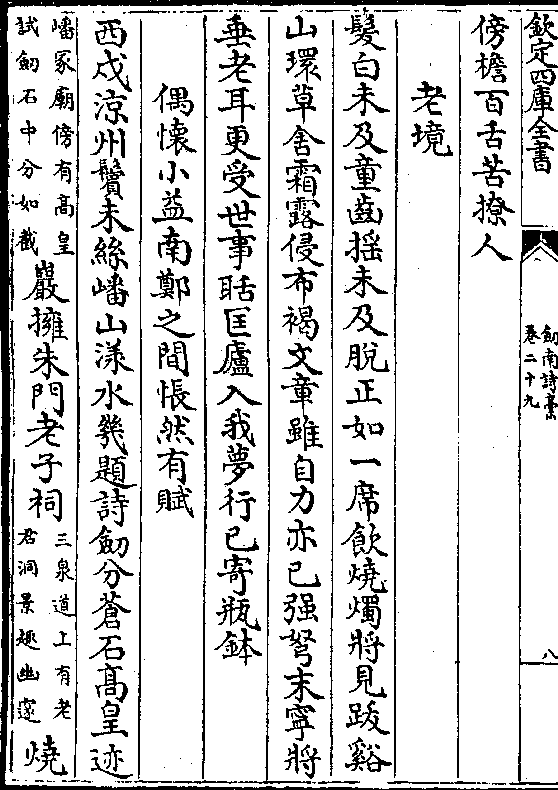 欽定四庫全書
劒南詩藁
卷二十九
八
傍檐百舌苦撩人
老境
髮白未及童齒揺未及脫正如一席飲燒燭將見跋谿
山環草舍霜露侵布褐文章雖自力亦已强弩末寧將
垂老耳更受世事聒匡廬入我夢行已寄瓶鉢
偶懷小益南鄭之間悵然有賦
西戍涼州鬢未絲嶓山漾水幾題詩劒分蒼石髙皇迹
嶓冢廟傍有髙皇
試劒石中分如截
巖擁朱門老子祠
三泉道上有老
君洞景趣幽邃
燒